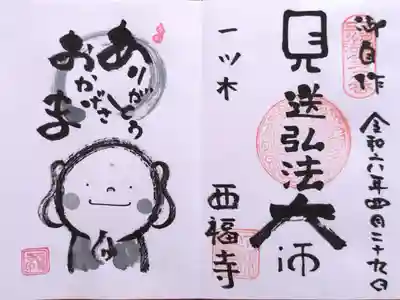 御自作
令和六年四月二十九日
見送弘法大師
一ツ木
西福寺
ありがとう
おかげさま